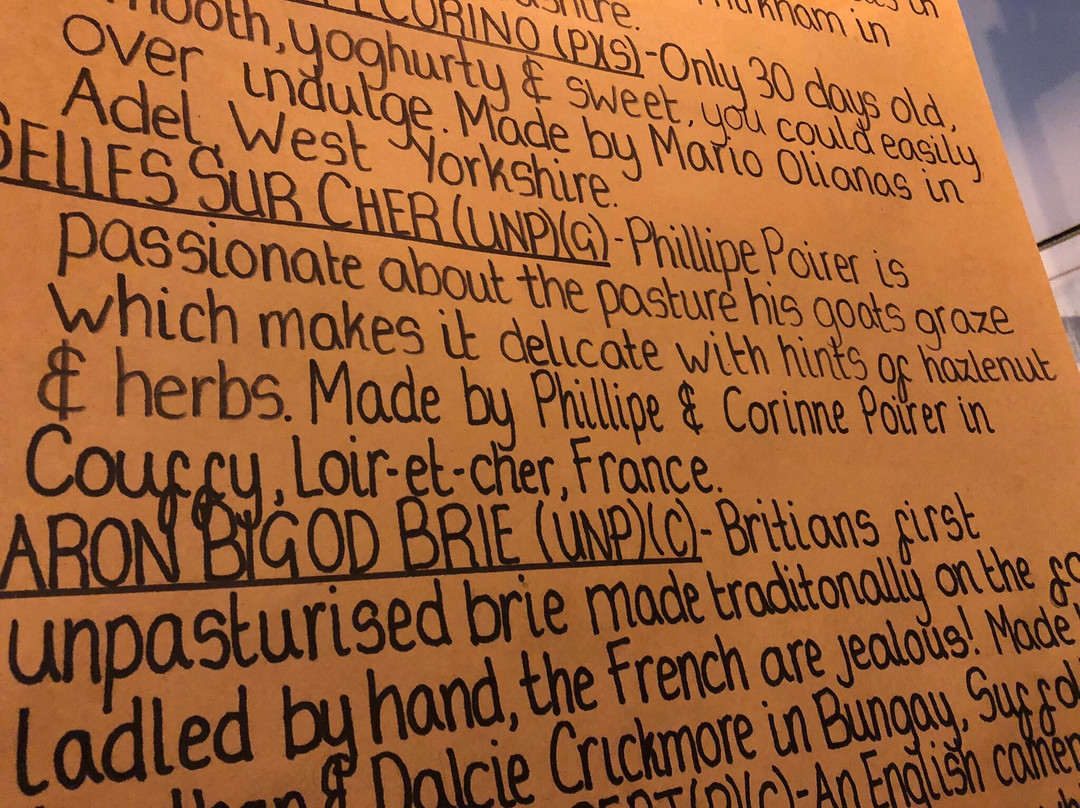 in
PECORINO (P)(S)-Only 30 days old,
smooth, yoghurty & sweet, you could easily
over indulge. Made by Mario Olianas in
Adel, West Yorkshire.
SELLES SUR CHER (UNP)(G)-Phillipe Poirer is
passionate about the pasture his goats graze
which makes it delicate with hints of hazlenut
& herbs. Made by Phillipe & Corinne Poirer in
Couffy, Loir-et-cher, France.
ARON BIGOD BRIE (UNP)(C)-Britians first
unpasturised brie made traditonally on the
ladled by hand, the French are jealous! Made
& Dalcie Crickmore in Bungay,
(P)(C)-An English